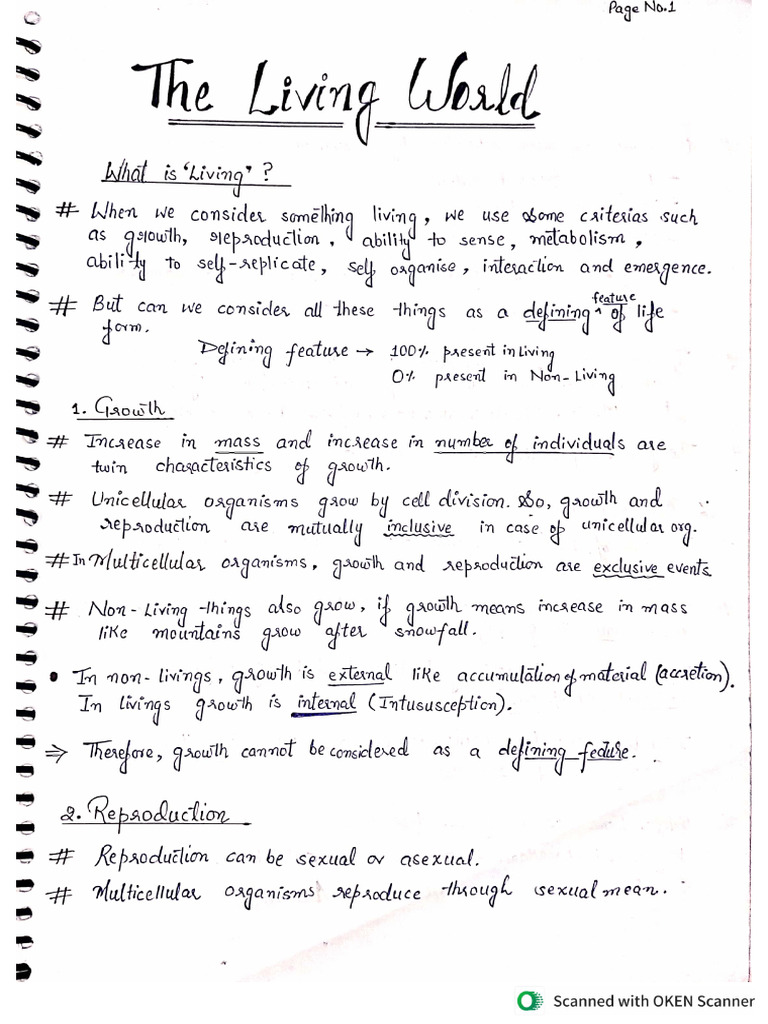 Page No.1
The Living World
What is 'Living' ?
# When we consider something living, we use some criterias such
as growth, reproduction, ability to sense, metabolism,
ability to self-replicate, self organise, interaction and emergence.
# But can we consider all these things as a defining ^feature of life
form.
Defining feature → 100% present in living
0% present in Non-Living
1. Growth
# Increase in mass and increase in number of individuals are
twin characteristics of growth.
# Unicellular organisms grow by cell division. So, growth and
reproduction are mutually inclusive in case of unicellular org.
# In Multicellular organisms, growth and reproduction are exclusive events
# Non-Living things also grow, if growth means increase in mass
like mountains grow after snowfall.
• In non-livings, growth is external like accumulation of material (accretion).
In livings growth is internal (Intususception).
⇒ Therefore, growth cannot be considered as a defining fedure.
2. Reproduction
# Reproduction can be sexual or asexual.
# Multicellular organisms reproduce through sexual mean.
Scanned with OKEN Scanner